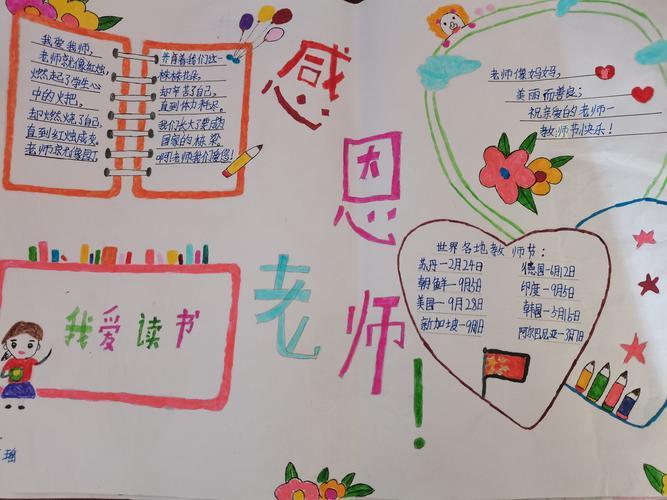 我爱我师,
老师就像红烛,
燃起了学生心
中的火把,
却燃烧了自己,
直到红烛成灰。
老师京尤像园丁,
养育着我们这一
株株花朵,
却辛苦了自己,
直到体力耗尽。
我们长大了要成为
国家的栋梁。
啊!老师我们爱您!
感
恩
老
师
!
老师像妈妈,
美丽而善良;
祝亲爱的老师—
教师节快乐!
我爱读书
世界各地教师节:
苏丹—2月24日
朝鲜—9月5日
美国—9月28日
新加坡—9月1日
德国—6月12日
印度—9月5日
韩国—5月16日
阿尔巴尼亚—3月7日
瑶